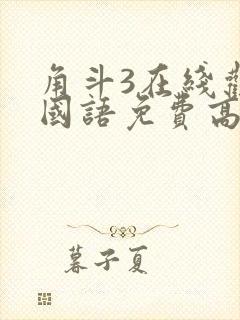 角斗3在线
國語免費高
暮子夏